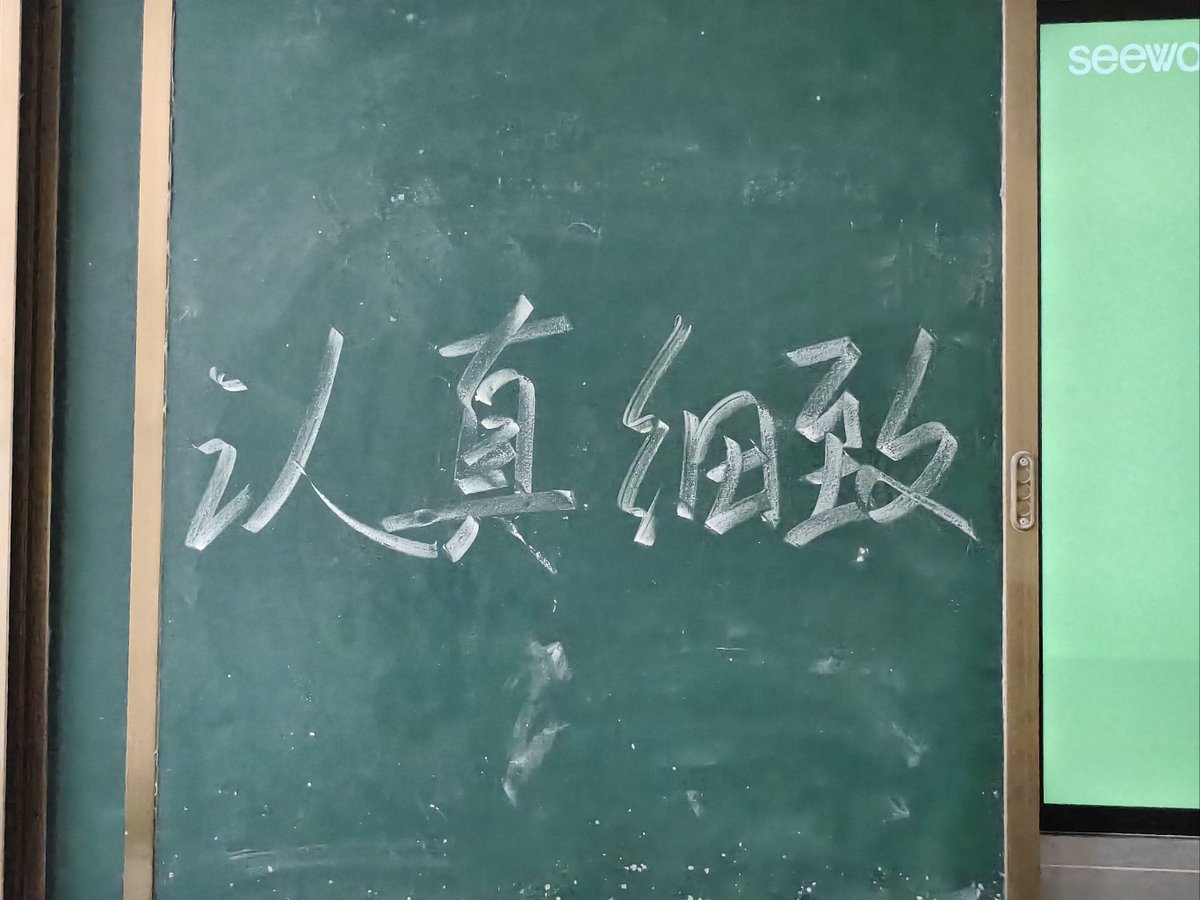 认真细致
seewo